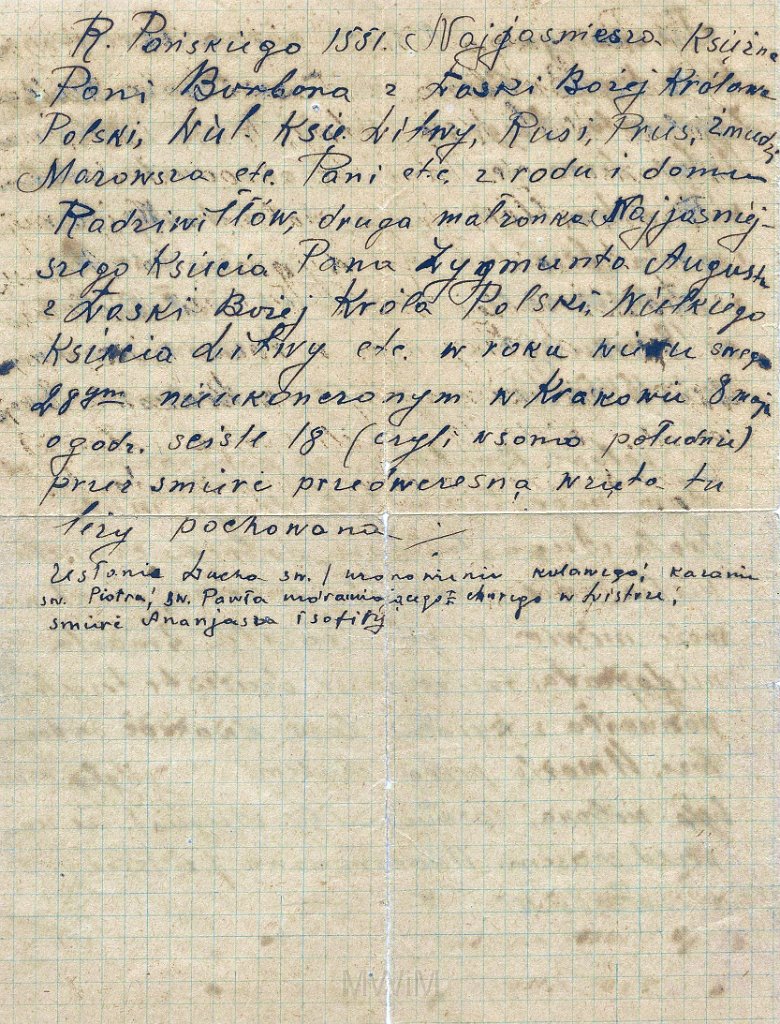 R. Pańskiego 1551. Najjaśniesza Księżna
Pani Barbara z Łaski Bożej Królowa
Polski, Wiel. Księ. Litwy, Rusi, Prus, Żmudzi
Mazowsza etc. Pani etc. z rodu i domu
Radziwiłłów, druga małżonka Najjaśniej-
szego Księcia Pana Zygmunta Augusta
z Łaski Bożej Króla Polski, Wielkiego
Księcia Litwy etc. w roku wieku swego
28ym nieukończonym w Krakowie 8 maja
o godz. ściśle 18 (czyli w samo południe)
przez śmierć przedwczesną wzięta tu
leży pochowana
Zesłanie Ducha św. / uzdrowienie kulawego; kazanie
św. Piotra; św. Pawła uzdrawiającego chorego w Listrze;
śmierć Ananjasza i Sofiry
MWiM